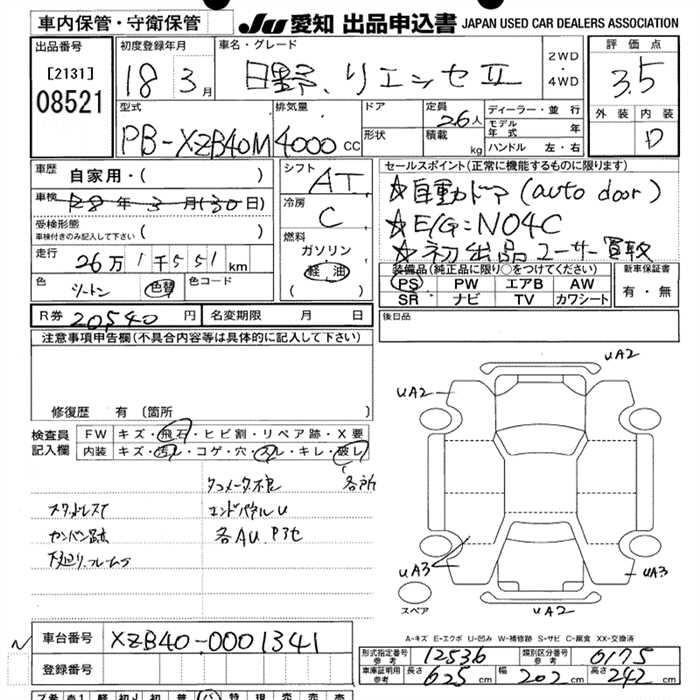 車内保管・守衛保管 JU 愛知 出品申込書 JAPAN USED CAR DEALERS ASSOCIATION
出品番号 初度登録年月 車名・グレード 評価点
[2131] 18 3月 日野 リエッセⅡ 2WD・4WD 3.5
08521
型式 排気量 ドア 定員 ディーラー・並行 外装 内装
PB-XZB40M 4000cc 形状 26人 モデル年式 年 D
積載 kg ハンドル 左・右
車歴 自家用・( ) シフト AT セールスポイント(正常に機能するものに限ります)
車検 28年3月(30日) 冷房 C ☆自動ドア(auto door)
受検形態 車検付きのみ記入して下さい ( ) ☆E/G:N04C
走行 26万1千551km 燃料 ガソリン・軽油 ( ) ☆初出品ユーザー買取
色 ツートン 色替 色コード 装備品(純正品に限り○をつけてください) 新車保証書
PS PW エアB AW 有・無
SR ナビ TV カワシート
R券 20,540円 名変期限 月 日 後日品
注意事項申告欄(不具合内容等は具体的に記入して下さい)
修復歴 有 (箇所 )
検査員記入欄 FW キズ・飛石・ヒビ割・リペア跡・X要
内装 キズ・汚れ・コゲ・穴・スレ・キレ・破レ
各所
タコメータ不良
スタッドレス エンドパネルU
カンバン跡 各AU.P3セ
下廻り.フレームサ
UA2
UA2
UA3
UA3
UA2
スペア
A-キズ E-エクボ U-凹み W-補修跡 S-サビ C-腐食 XX-交換済
車台番号 XZB40-0001341
登録番号
形式指定番号 参考 12536 類別区分番号 参考 0175
車庫証明用 参考 長さ 625cm 幅 202cm 高さ 242cm